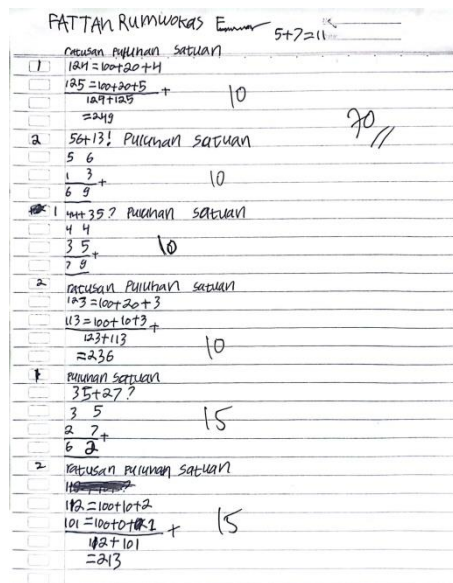 FATTAN Rumwokas
5+7=11
ratusan Puluhan satuan
1 124=100+20+4
125=100+20+5 +
124+125
=249
10
70
2 56+13! Puluhan satuan
5 6
1 3 +
6 9
10
1 44+35? Puluhan satuan
4 4
3 5 +
7 9
10
2 ratusan Puluhan satuan
123=100+20+3
113=100+10+3 +
123+113
=236
10
1 Puluhan satuan
35+27?
3 5
2 7 +
6 2
15
2 ratusan Puluhan satuan
112=100+10+2
101=100+0+1 +
112+101
=213
15